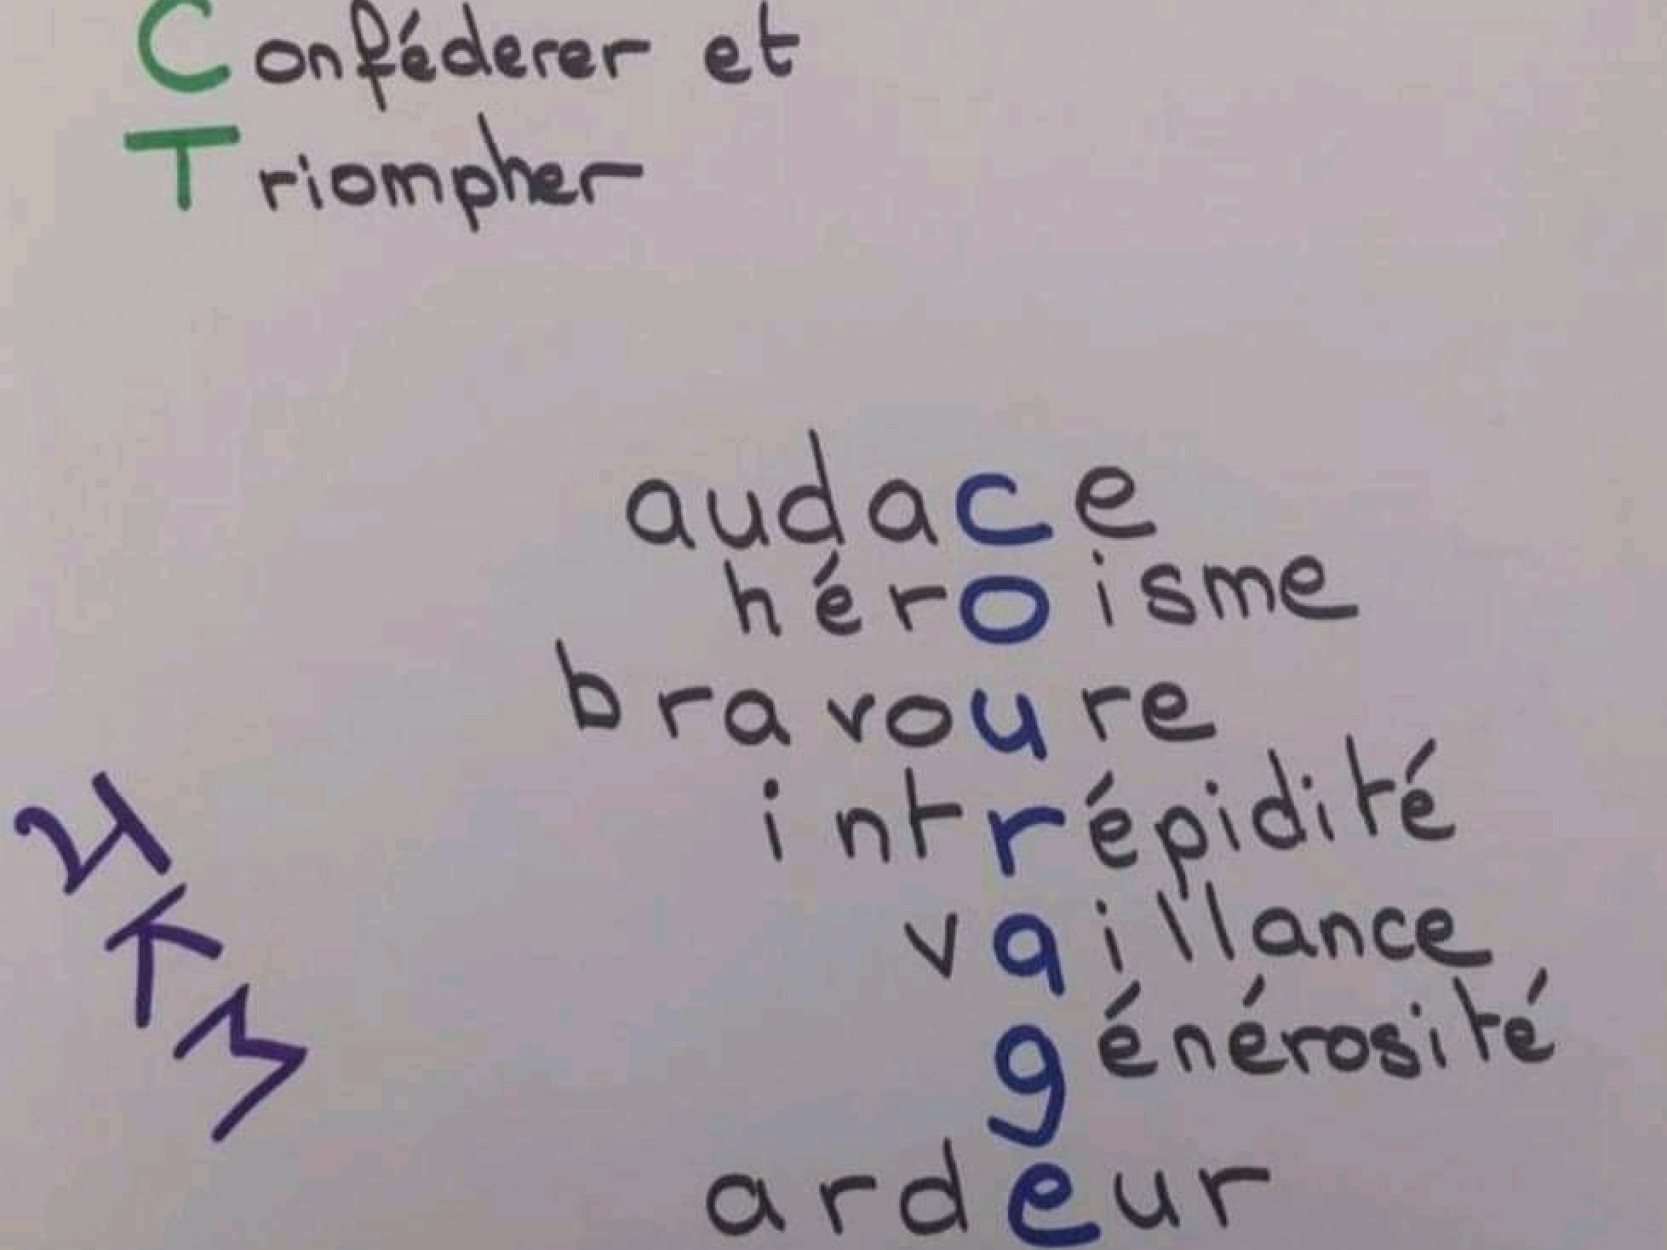 Conféderer et
Triompher
audace
héroisme
bravoure
intrépidité
vaillance
générosité
ardeur